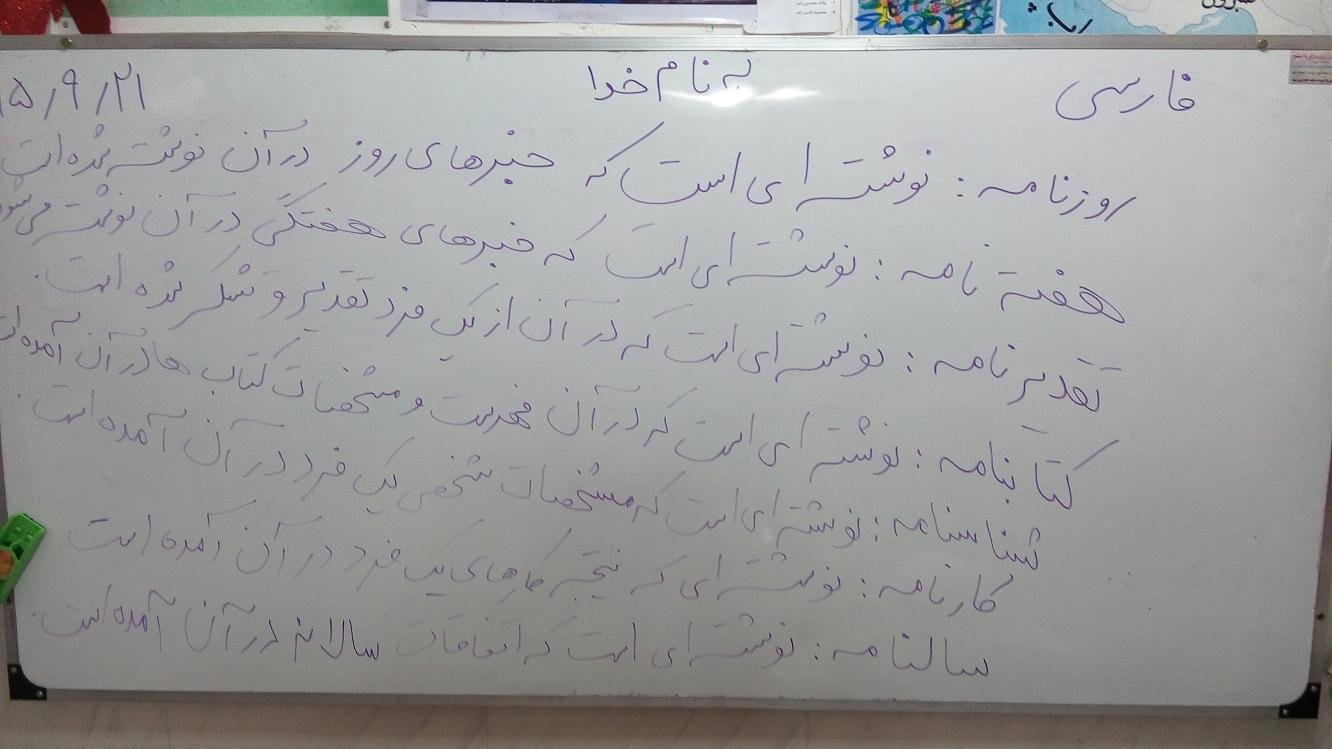 فارسی
به نام خدا
۵٫۹٫۲۱
روزنامه : نوشته ای است که خبرهای روز در آن نوشته شده است
هفته نامه : نوشته ای است که خبرهای هفتگی در آن نوشته می شود
تقدیر نامه : نوشته ای است که در آن از یک فرد تقدیر و تشکر شده است.
کتابنامه : نوشته ای است که در آن فهرست و مشخصات کتاب ها در آن آمده است
شناسنامه : نوشته ای است که مشخصات شخصی یک فرد در آن آمده است.
کارنامه : نوشته ای که نتیجه کارهای یک فرد در آن آمده است
سالنامه : نوشته ای است که اتفاقات سالانه در آن آمده است.